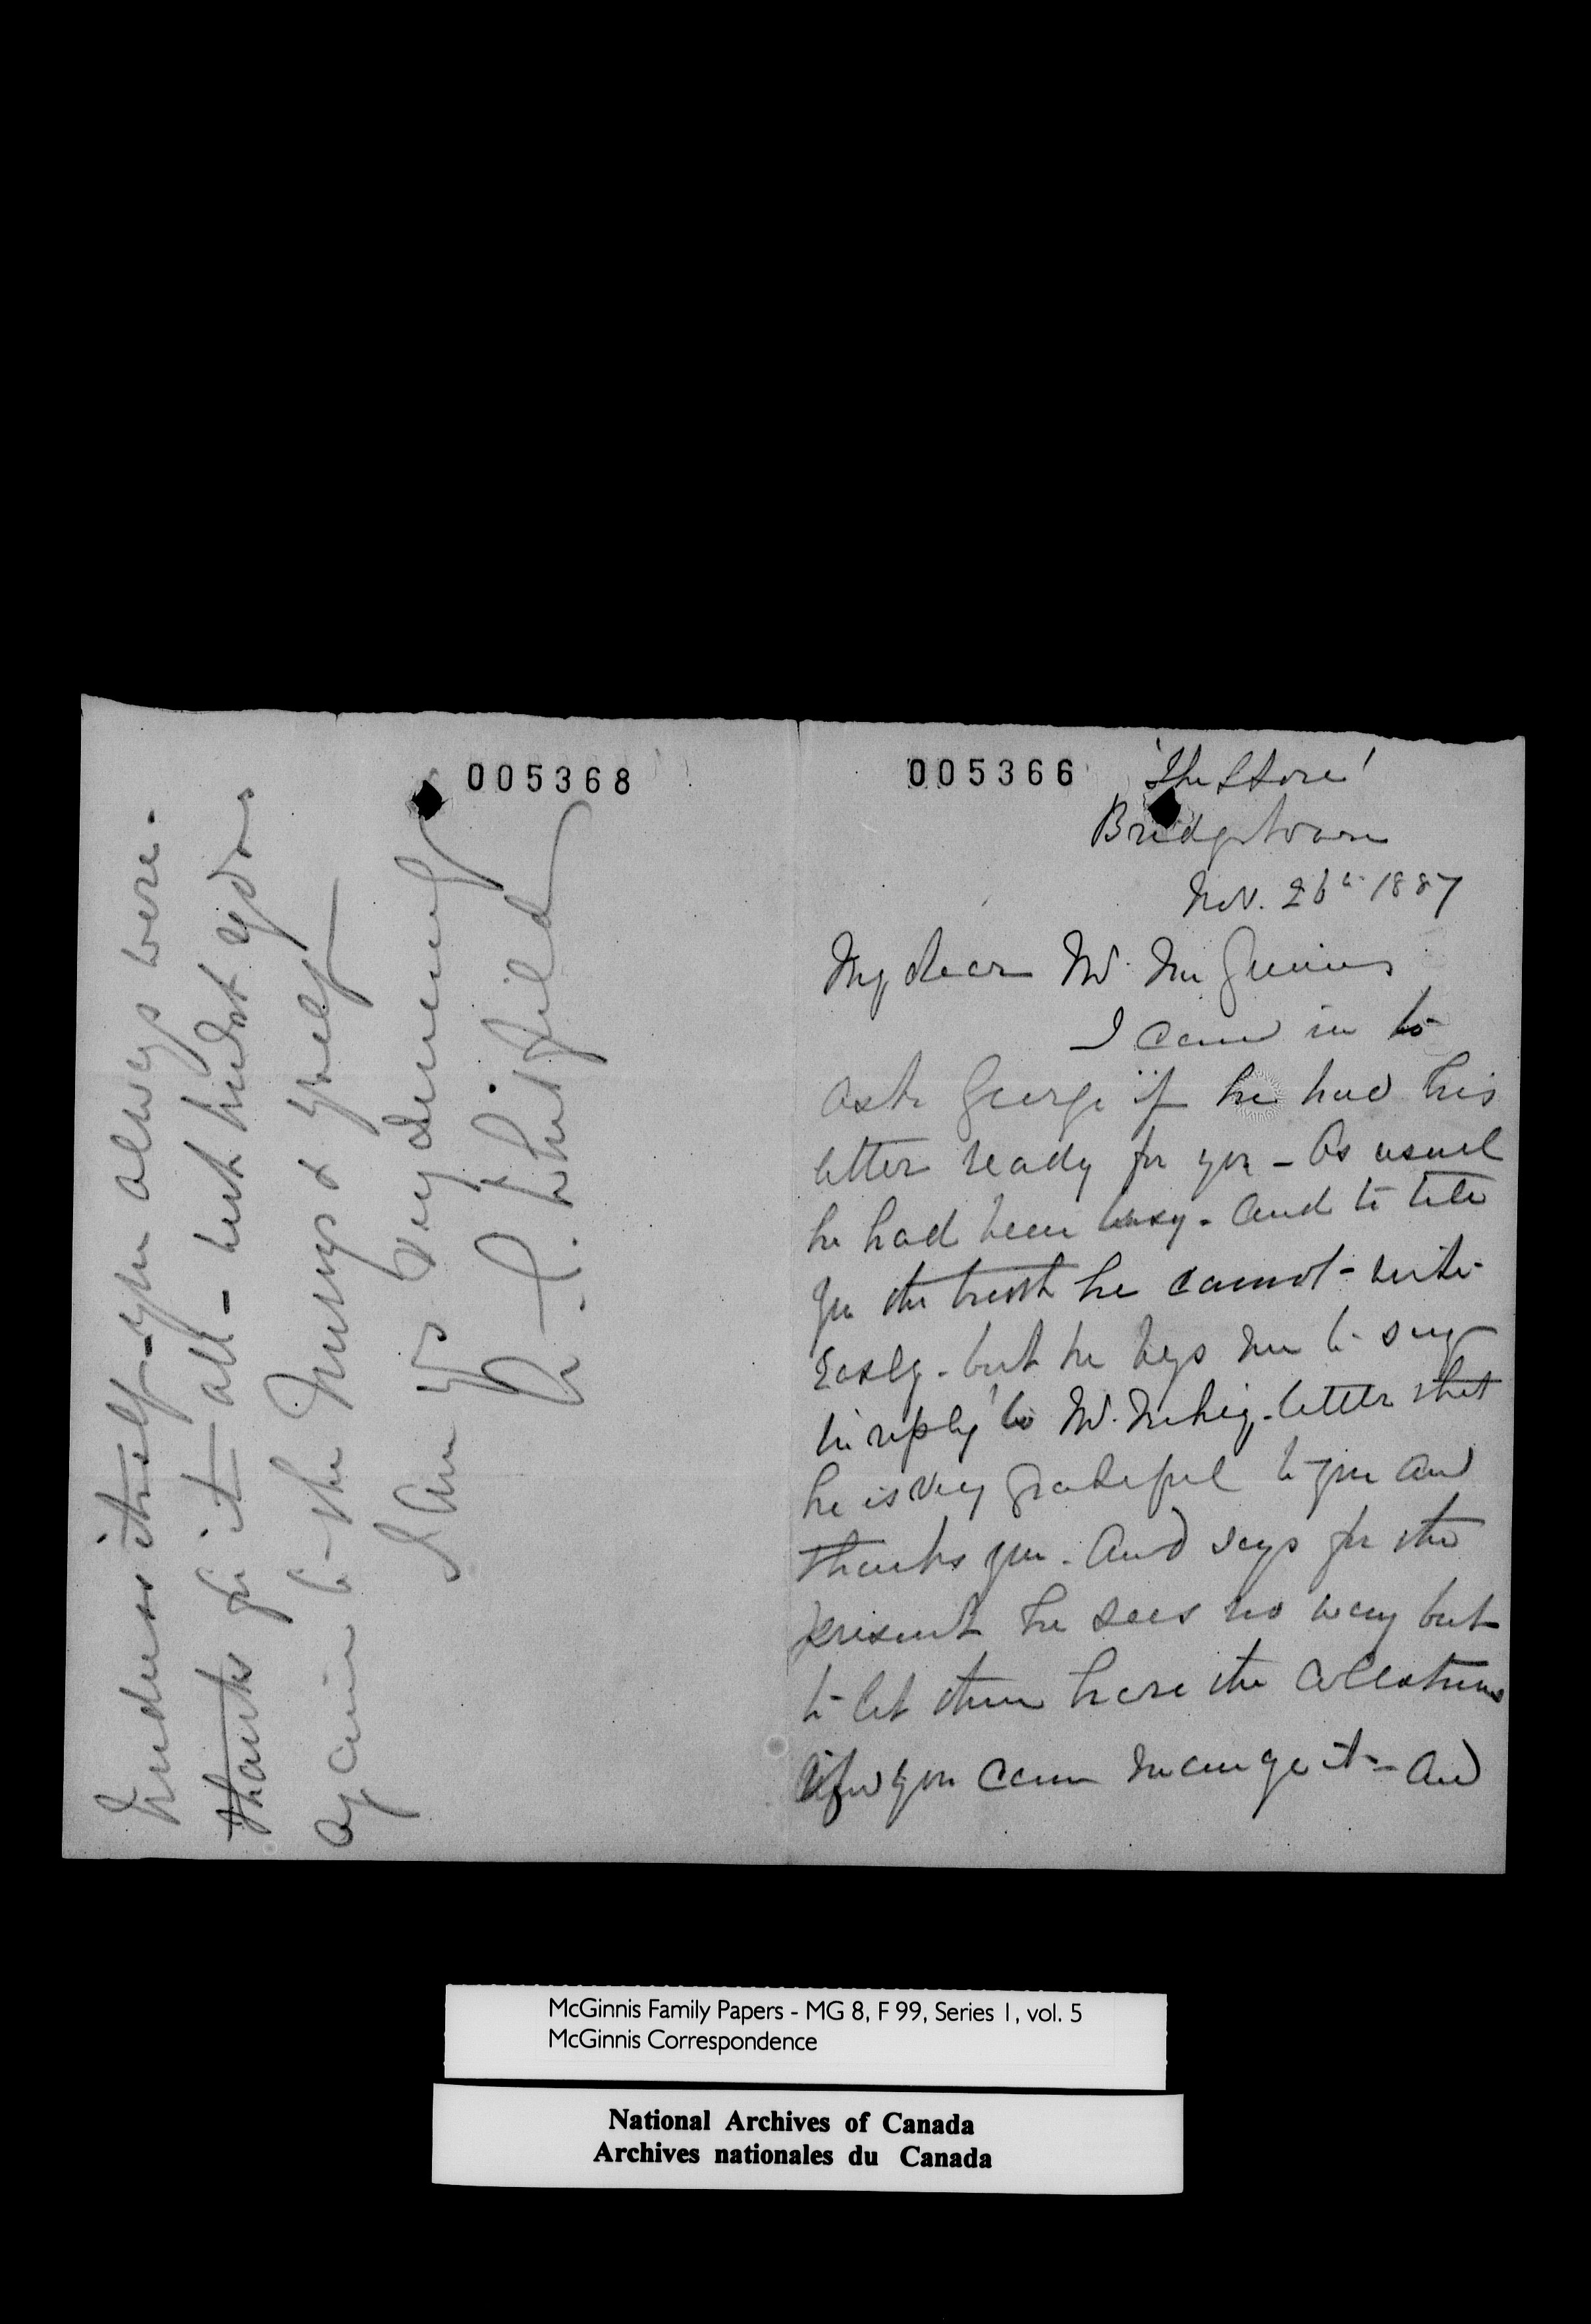 005366
'The Store'
Bridgetown
Nov. 26th 1887
My dear Mr. McGinnis
I came in to
ask George if he had his
letter ready for you - As usual
he had been busy - and to tell
you the truth he cannot - write
easily - but he begs me to say
in reply to Mr. letter that
he is very grateful to you and
thanks you. And says for the
present he sees no way but
to let them have the collections
if you can manage it - and
005368
Kindness itself - you always were.
thanks for it all - best
again to - the & yrself
I am yrs very sincerely
McGinnis Family Papers - MG 8, F 99, Series 1, vol. 5
McGinnis Correspondence
National Archives of Canada
Archives nationales du Canada